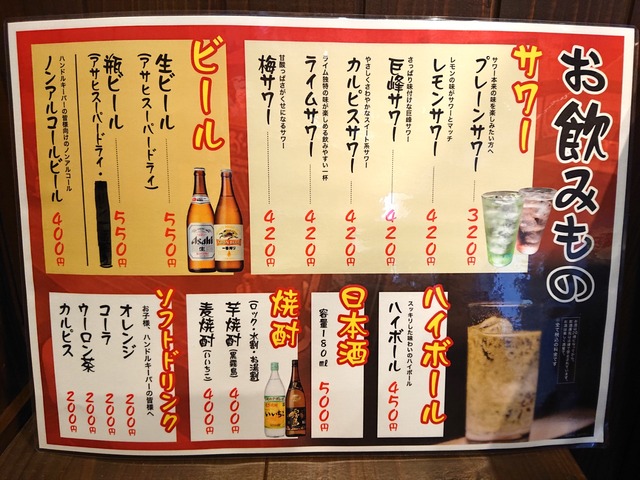 お飲みもの
サワー
サワー本来の味を楽しみたい方へ
プレーンサワー 320円
レモンの味がサワーとマッチ
レモンサワー 420円
さっぱり味付けな巨峰サワー
巨峰サワー 420円
やさしくさわやかなスイート系サワー
カルピスサワー 420円
ライム独特の味が楽しめる飲みやすい一杯
ライムサワー 420円
甘酸っぱさがくせになるサワー
梅サワー 420円
ビール
生ビール 550円
(アサヒスーパードライ)
瓶ビール 550円
(アサヒスーパードライ・
ハンドルキーパーの皆様向けのノンアルコール
ノンアルコールビール 400円
Asahi
ハイボール
スッキリした味わいのハイボール
ハイボール 450円
日本酒
容量180ml 500円
焼酎
(ロック・水割・お湯割)
芋焼酎(黒霧島) 400円
麦焼酎(いいちこ) 400円
いいちこ
ソフトドリンク
お子様、ハンドルキーパーの皆様へ
オレンジ 200円
コーラ 200円
ウーロン茶 200円
カルピス 200円